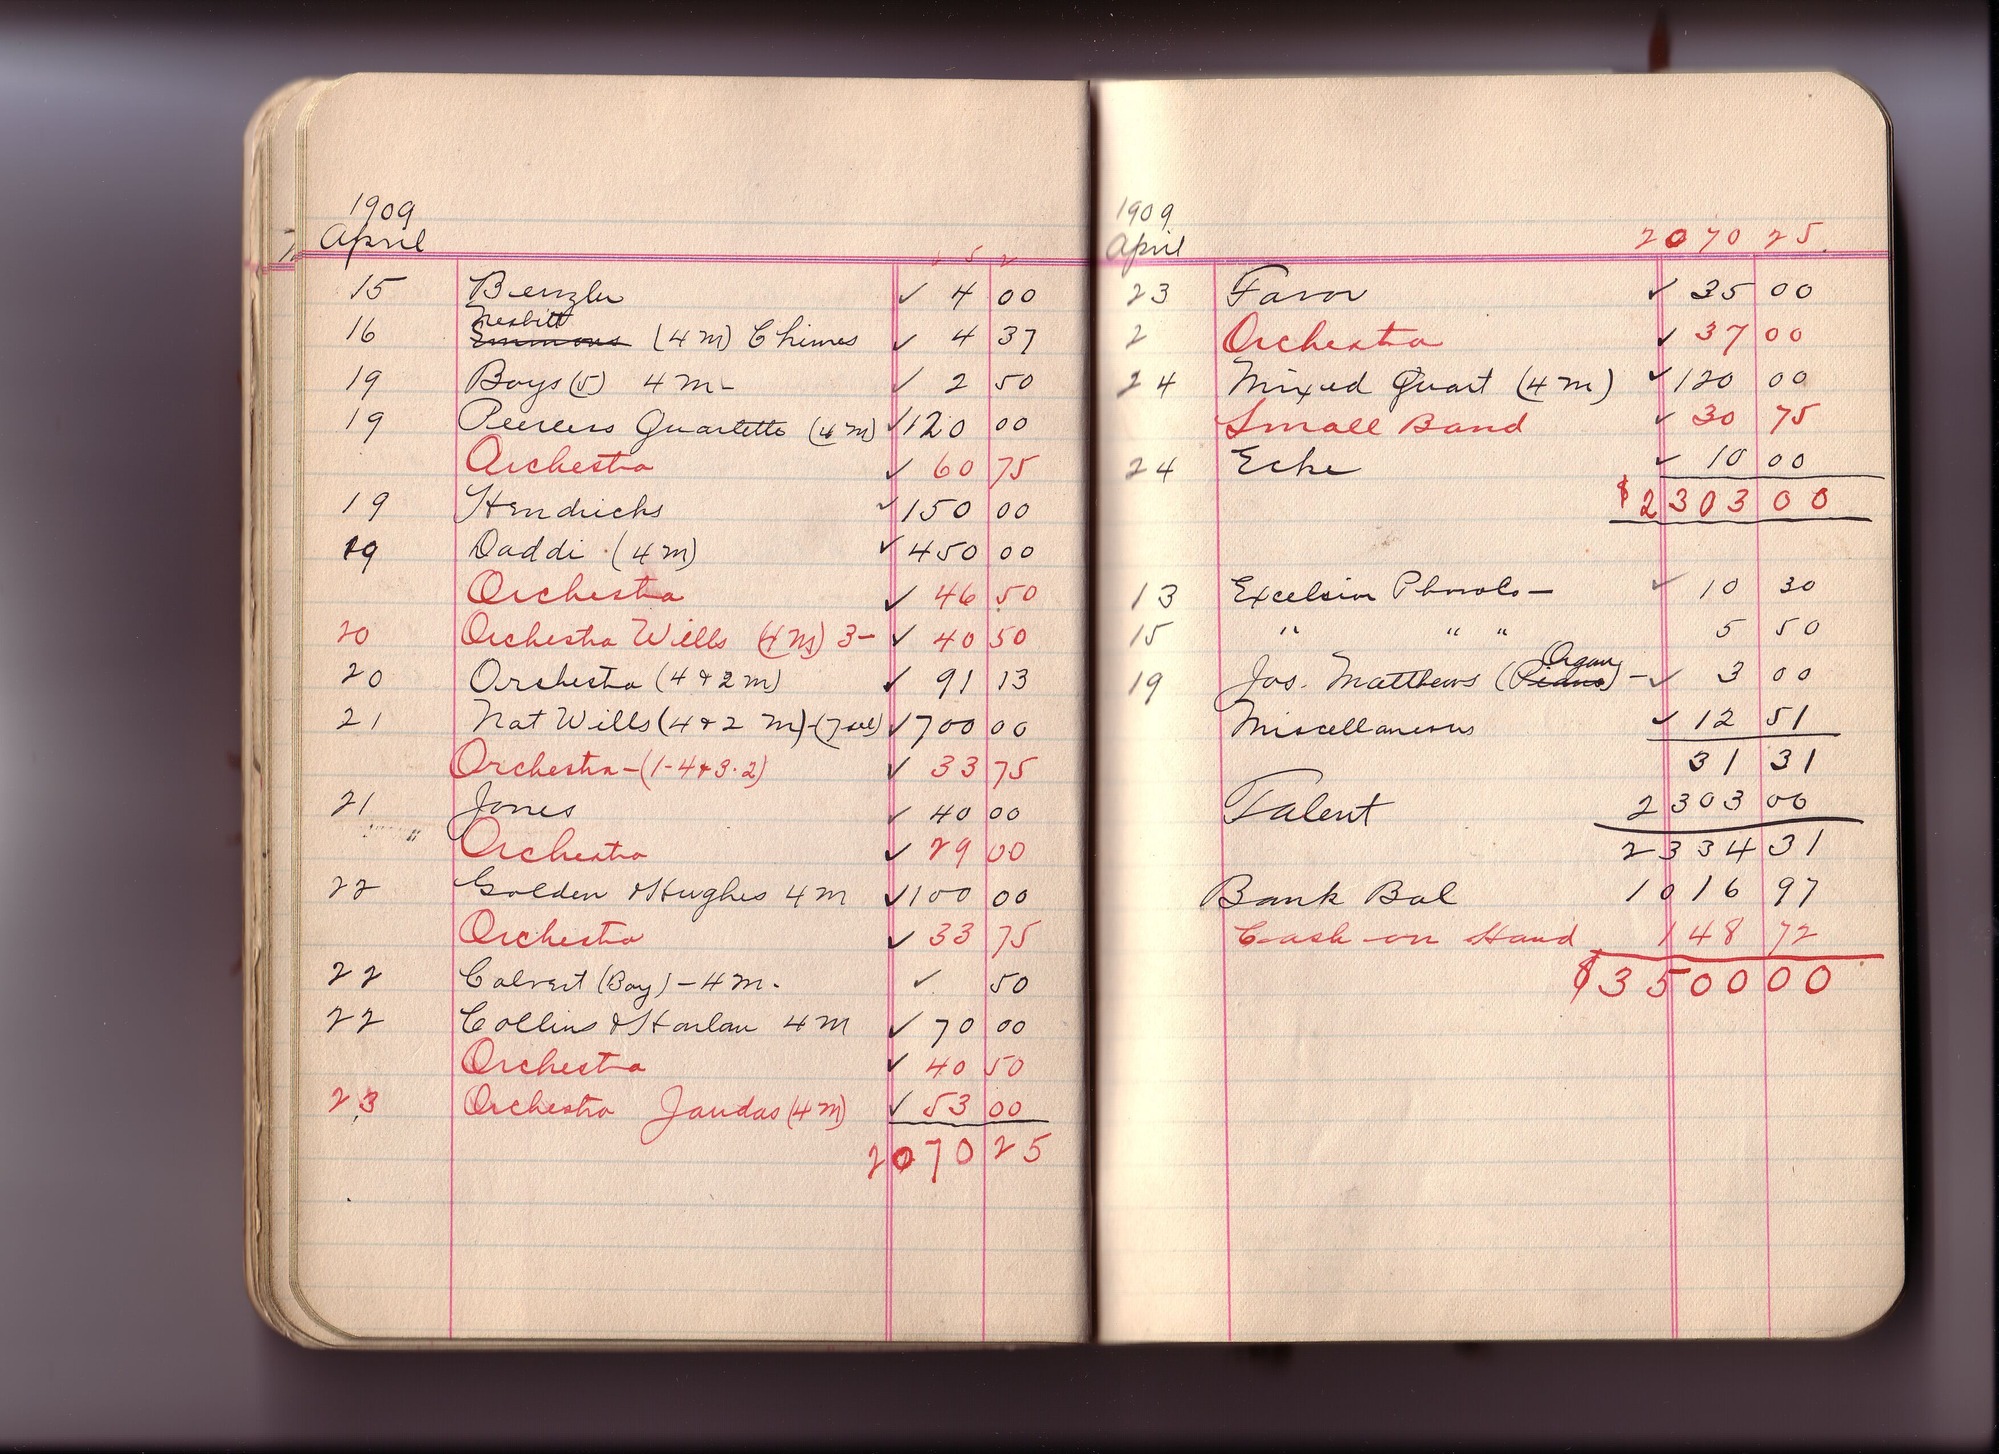 1909
April
15 Benzler ✓ 4 00
Nesbitt
16 Emmons (4 M) Chimes ✓ 4 37
19 Boys (5) 4 M- ✓ 2 50
19 Peerless Quartette (4 M) ✓ 120 00
Orchestra ✓ 60 75
19 Hendricks ✓ 150 00
19 Daddi (4 M) ✓ 450 00
Orchestra ✓ 46 50
20 Orchestra Wills (4 M) 3- ✓ 40 50
20 Orchestra (4 & 2 M) ✓ 91 13
21 Nat Wills (4 & 2 M)-(7 sel) ✓ 700 00
Orchestra-(1-4 & 3-2) ✓ 33 75
21 Jones ✓ 40 00
" Orchestra ✓ 29 00
22 Golden & Hughes 4 M ✓ 100 00
Orchestra ✓ 33 75
22 Calvert (Boy) - 4 M. ✓ 50
22 Collins & Harlan 4 M ✓ 70 00
Orchestra ✓ 40 50
23 Orchestra Jaudas (4 M) ✓ 53 00
2070 25
1909
April 2070 25.
23 Favor ✓ 35 00
2 Orchestra ✓ 37 00
24 Mixed Quart (4 M) ✓ 120 00
Small Band ✓ 30 75
24 Ecke ✓ 10 00
$2303 00
13 Excelsior Phonolo- ✓ 10 30
15 " " " 5 50
Organ
19 Jos. Matthews (Piano) - ✓ 3 00
Miscellaneous ✓ 12 51
31 31
Talent 2303 00
2334 31
Bank Bal 1016 97
Cash on Hand 148 72
$3500 00